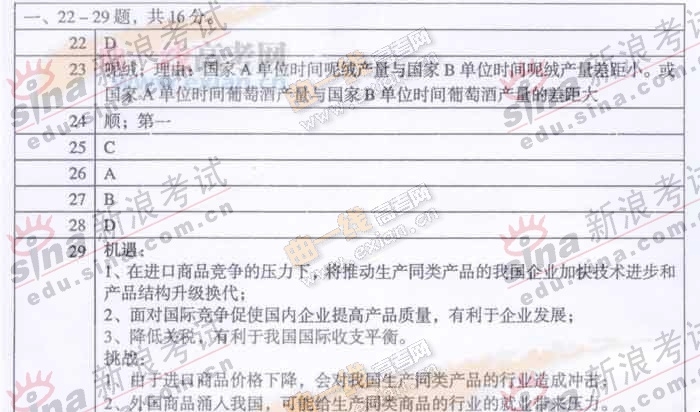 一、22－29题，共16分。
22 D
23 呢绒；理由：国家A单位时间呢绒产量与国家B单位时间呢绒产量差距小。或
国家A单位时间葡萄酒产量与国家B单位时间葡萄酒产量的差距大
24 顺；第一
25 C
26 A
27 B
28 D
29 机遇：
1、在进口商品竞争的压力下，将推动生产同类产品的我国企业加快技术进步和
产品结构升级换代；
2、面对国际竞争促使国内企业提高产品质量，有利于企业发展；
3、降低关税，有利于我国国际收支平衡。
挑战：
1、由于进口商品价格下降，会对我国生产同类产品的行业造成冲击；
2、外国商品涌入我国，可能给生产同类商品的行业的就业带来压力
sina 新浪考试
edu.sina.com.cn
曲一线高考网
www.exion.cn